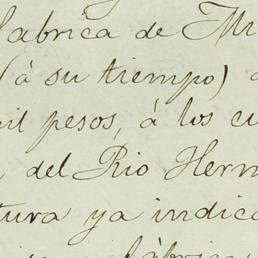 fabrica de
(á su tiempo)
mil pesos, á los
del Rio Herm
tura ya indica
fábrica